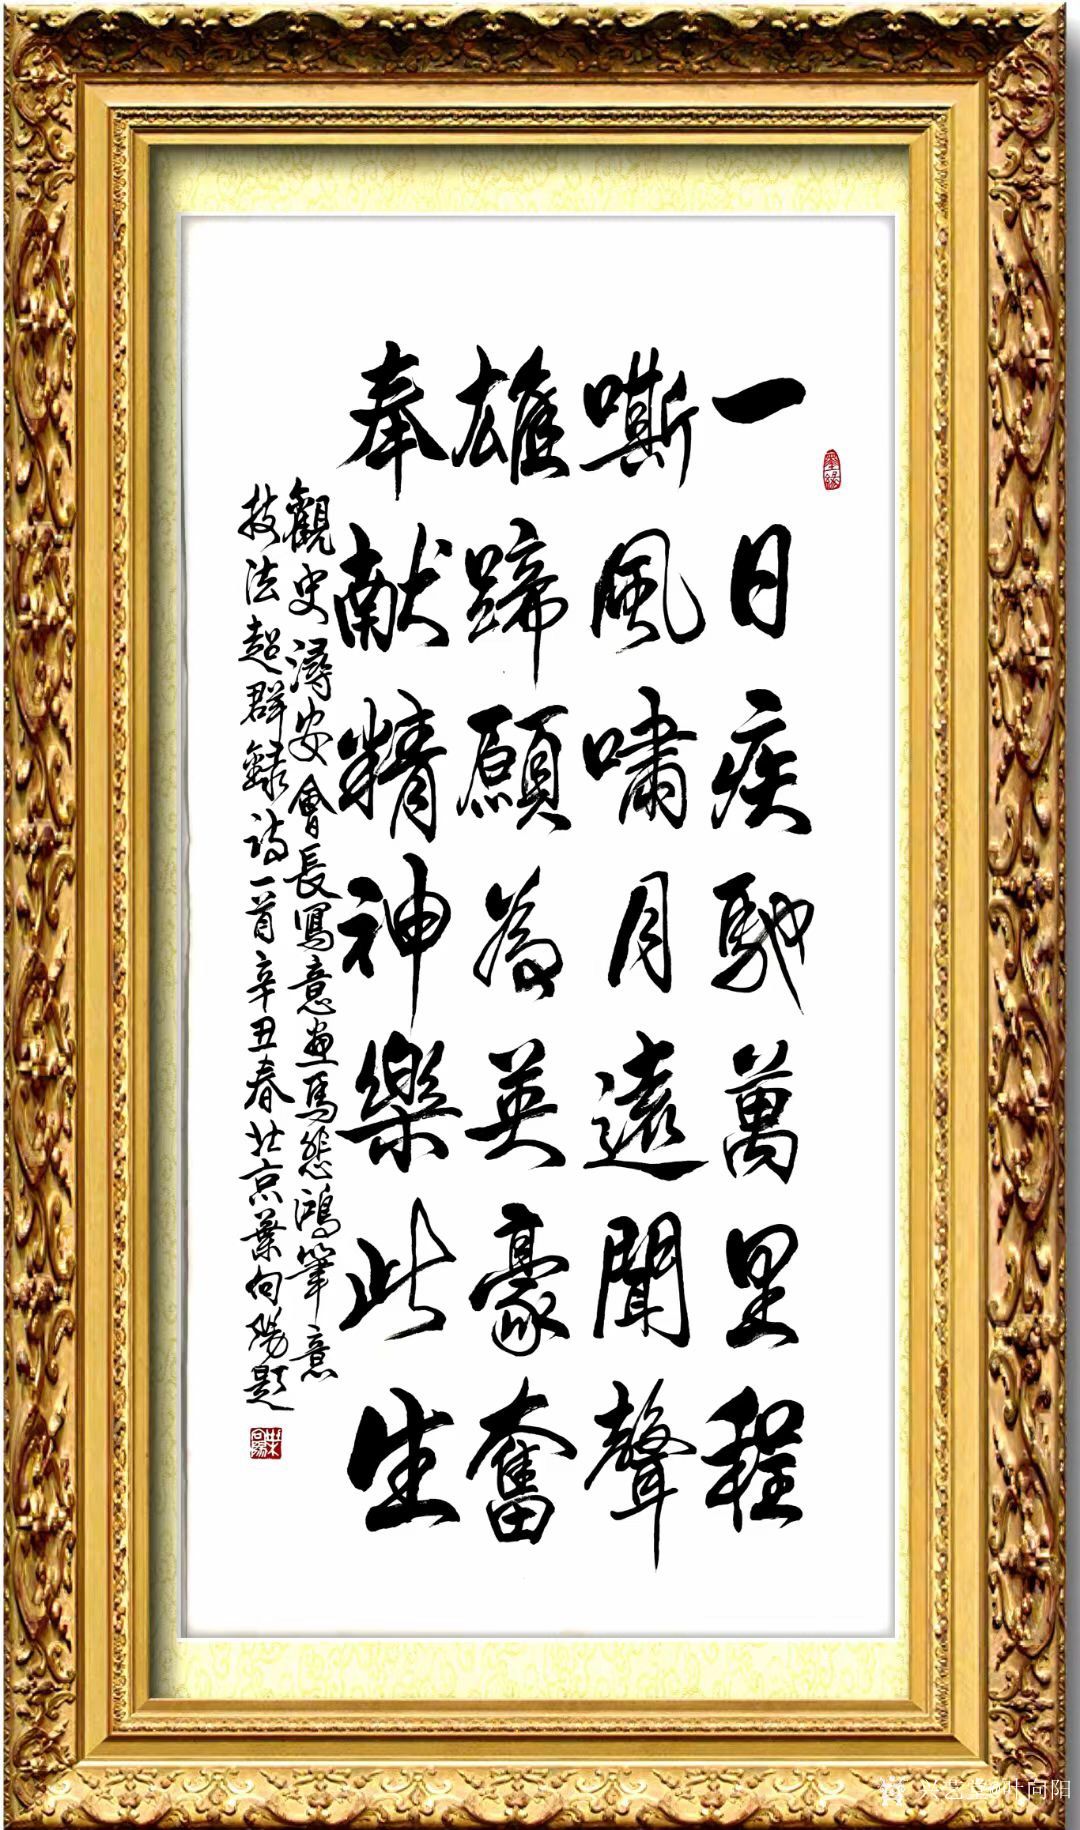 一日疾馳萬里程
嘶風嘯月遠聞聲
雄蹄願為英豪奮
奉献精神樂此生
觀史潯安會長寫意画馬悲鴻筆意
技法超群錄詩一首辛丑春北京葉向陽題
葉向陽
兴艺堂@叶向阳